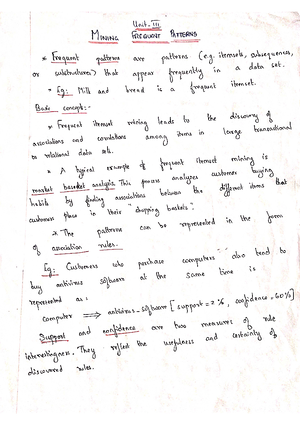 Unit-III
MINING FREQUENT PATTERNS
* Frequent patterns are patterns (e.g. itemsets, subsequences,
or substructures) that appear frequently in a data set.
* Eg: Milk and bread is a frequent itemset.
Basic concepts:-
* Frequent itemset mining leads to the discovery of
associations and correlations among items in large transactional
or relational data sets.
* A typical example of frequent itemset mining is
market basket analysis. This process analyzes customer buying
habits by finding associations between the different items that
customers place in their "shopping baskets".
* The patterns can be represented in the form
of association rules.
Eg: Customers who purchase computers also tend to
buy antivirus software at the same time is
represented as:
computer ⟹ antivirus-software [support=2%, confidence=60%]
Support and confidence are two measures of rule
interestingness. They reflect the usefulness and certainty of
discovered rules.